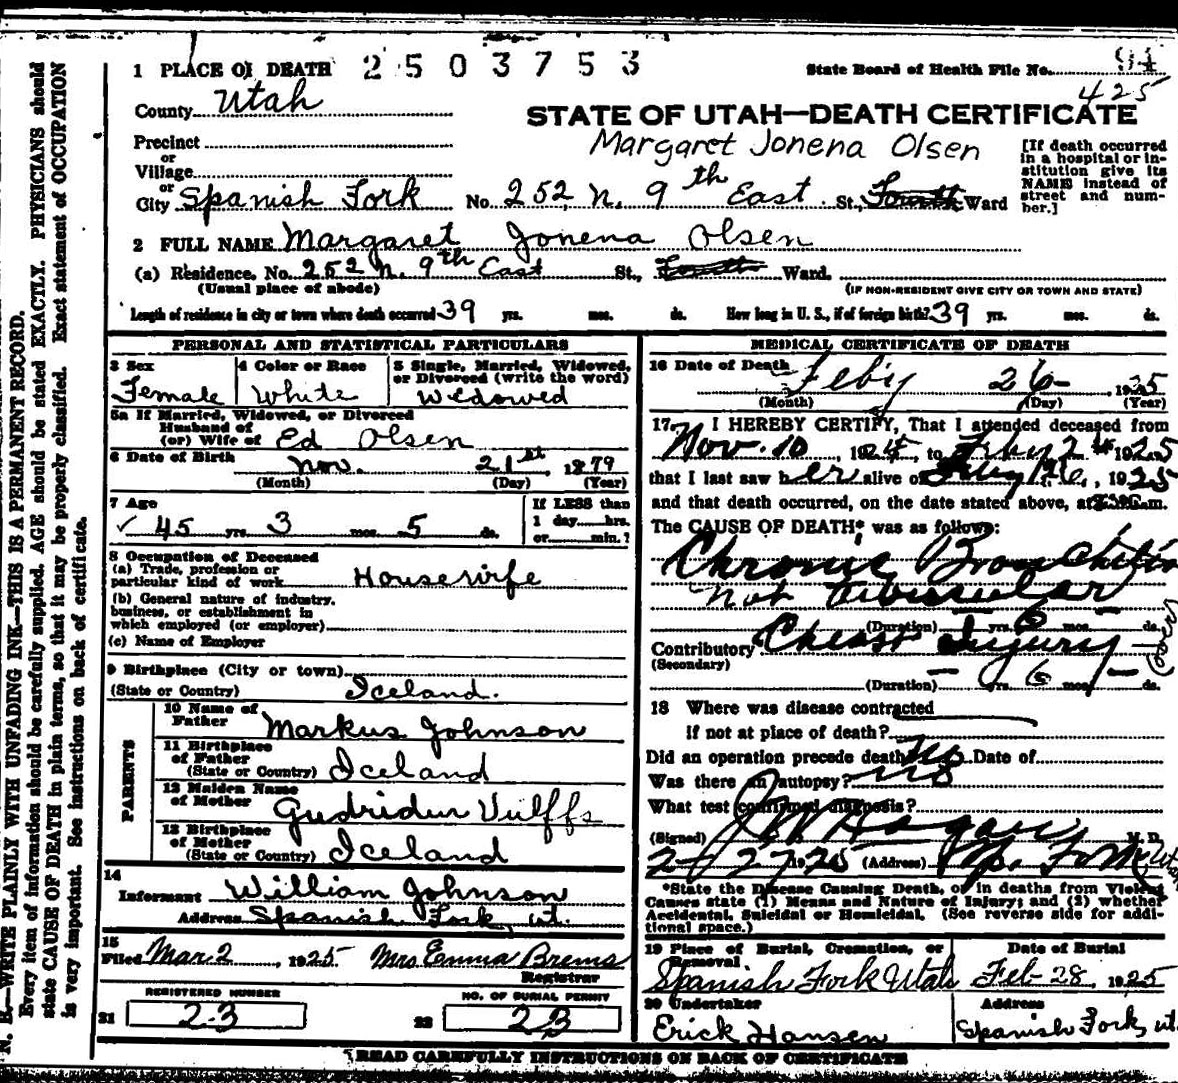 2503753
1 PLACE OF DEATH
State Board of Health File No. 94
425
County Utah
STATE OF UTAH—DEATH CERTIFICATE
Margaret Jonena Olsen
Precinct
or
Village
or
City Spanish Fork No. 252 N. 9th East St., Fourth Ward
[If death occurred
in a hospital or in-
stitution give its
NAME instead of
street and num-
ber.]
2 FULL NAME Margaret Jonena Olsen
(a) Residence, No. 252 N. 9th East St., Fourth Ward.
(Usual place of abode)
(IF NON-RESIDENT GIVE CITY OR TOWN AND STATE)
Length of residence in city or town where death occurred 39 yrs. mos. ds. How long in U. S., if of foreign birth? 39 yrs. mos. ds.
PERSONAL AND STATISTICAL PARTICULARS
3 Sex
Female
4 Color or Race
White
5 Single, Married, Widowed,
or Divorced (write the word)
Widowed
5a If Married, Widowed, or Divorced
Husband of
(or) Wife of Ed Olsen
6 Date of Birth Nov. 21st 1879
(Month) (Day) (Year)
7 Age
45 yrs. 3 mos. 5 ds.
If LESS than
1 day....hrs.
or....min.?
8 Occupation of Deceased
(a) Trade, profession or
particular kind of work Housewife
(b) General nature of industry,
business, or establishment in
which employed (or employer)
(c) Name of Employer
9 Birthplace (City or town)
(State or Country) Iceland.
PARENTS
10 Name of
Father Markus Johnson
11 Birthplace
of Father
(State or Country) Iceland
12 Maiden Name
of Mother Gudridur Vulffs
13 Birthplace
of Mother
(State or Country) Iceland
14
Informant William Johnson
Address Spanish Fork, Ut.
15
Filed Mar. 2, 1925 Mrs Emma Brems
Registrar
REGISTERED NUMBER
21 23
NO. OF BURIAL PERMIT
22 23
MEDICAL CERTIFICATE OF DEATH
16 Date of Death Feby 26 1925
(Month) (Day) (Year)
17 I HEREBY CERTIFY, That I attended deceased from
Nov. 10, 1924, to Feby 26 1925
that I last saw her alive on Feby 26, 1925
and that death occurred, on the date stated above, at m.
The CAUSE OF DEATH* was as follows:
Chronic Bronchitis
not Tubercular
(Duration) yrs. 6 mos. ds.
Contributory Chest Injury (over)
(Secondary)
(Duration) – yrs. 6 mos. – ds.
18 Where was disease contracted
if not at place of death?
Did an operation precede death? No Date of
Was there an autopsy? no
What test confirmed diagnosis?
(Signed) J W Hagan M. D.
2/27 1925 (Address) Sp. Fork Utah
*State the Disease Causing Death, or in deaths from Violent
Causes state (1) Means and Nature of Injury; and (2) whether
Accidental, Suicidal or Homicidal. (See reverse side for addi-
tional space.)
19 Place of Burial, Cremation, or
Removal
Spanish Fork Utah
Date of Burial
Feb-28, 1925
20 Undertaker
Erick Hansen
Address
Spanish Fork, Ut.
READ CAREFULLY INSTRUCTIONS ON BACK OF CERTIFICATE
N. B.—WRITE PLAINLY WITH UNFADING INK—THIS IS A PERMANENT RECORD.
Every item of information should be carefully supplied. AGE should be stated EXACTLY. PHYSICIANS should
state CAUSE OF DEATH in plain terms, so that it may be properly classified. Exact statement of OCCUPATION
is very important. See instructions on back of certificate.